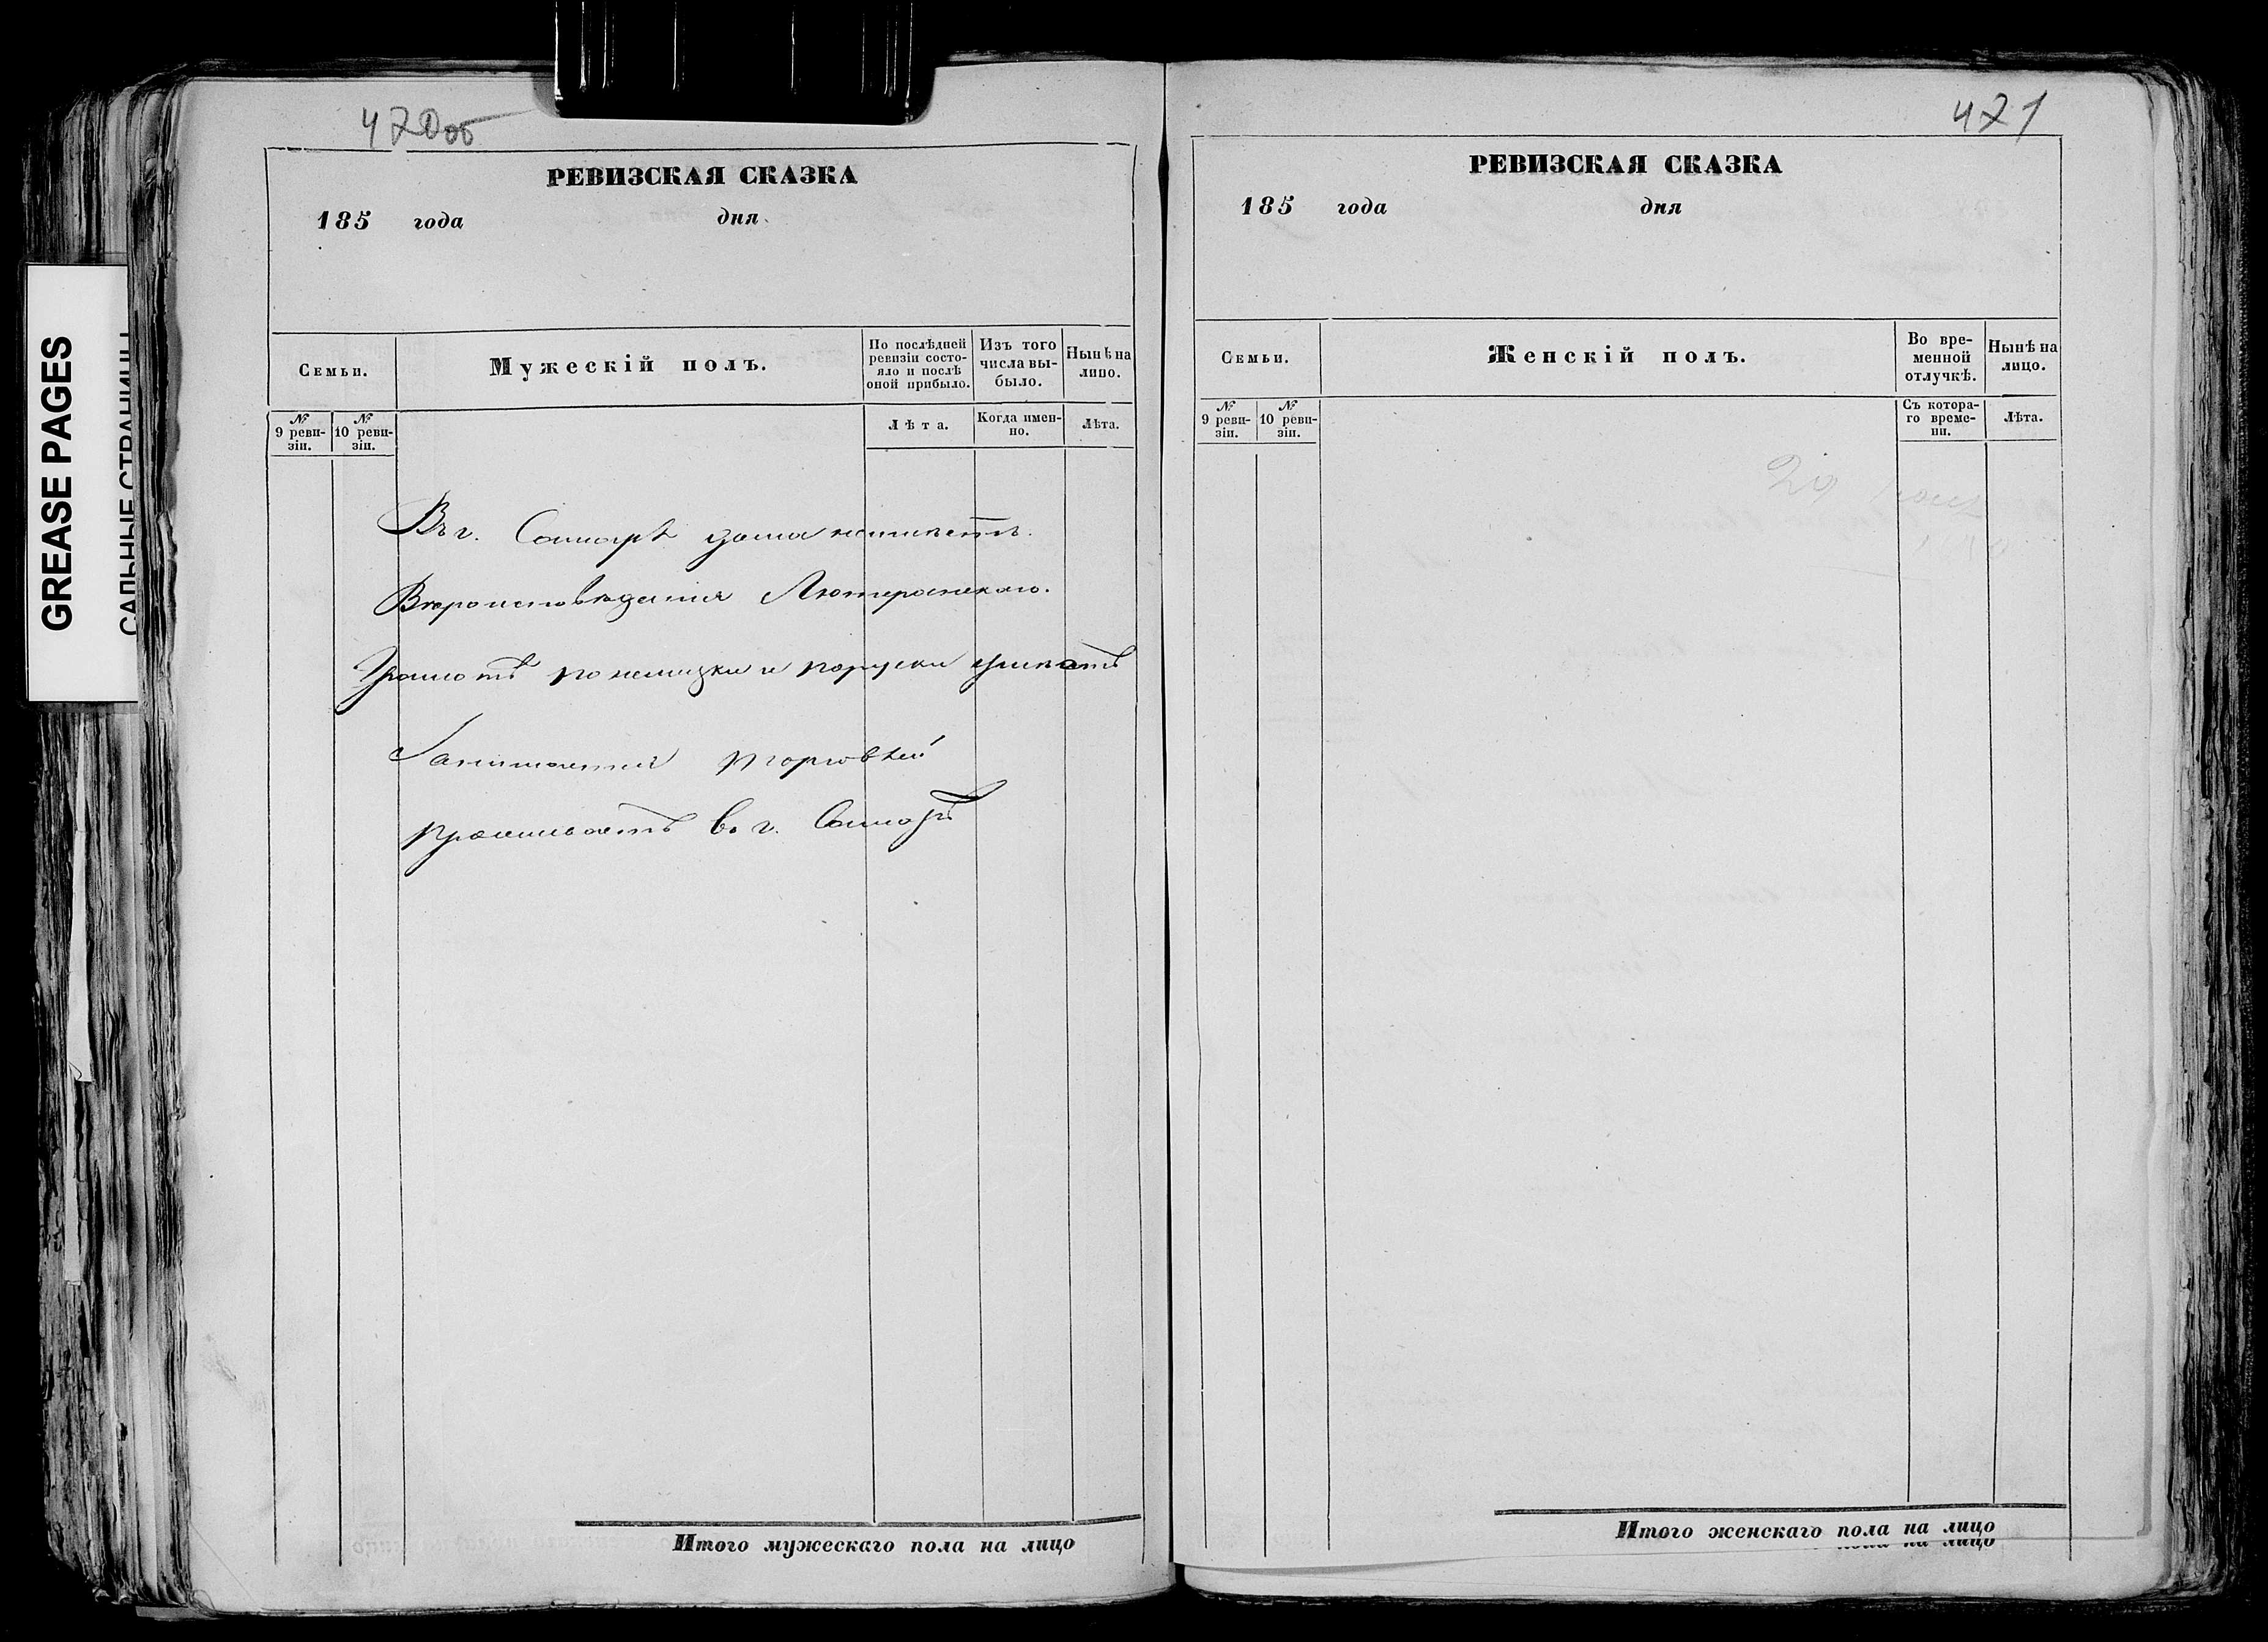 420об
РЕВИЗСКАЯ СКАЗКА
185 года дня
Семьи.
Мужескій полъ.
По послѣдней ревизіи состояло и послѣ оной прибыло.
Изъ того числа выбыло.
Нынѣ на лицо.
№ 9 ревизіи.
№ 10 ревизіи.
Лѣта.
Когда именно.
Лѣта.
Въ г. Самарѣ дома неимѣетъ.
Вѣроисповѣданія Лютеранскаго.
Грамотѣ понемецки и поруски умѣетъ
Занимается торговлей
проживаетъ въ г. Самарѣ
Итого мужескаго пола на лицо
421
РЕВИЗСКАЯ СКАЗКА
185 года дня
Семьи.
Женскій полъ.
Во временной отлучкѣ.
Нынѣ на лицо.
№ 9 ревизіи.
№ 10 ревизіи.
Съ котораго времени.
Лѣта.
Итого женскаго пола на лицо
пола на лицо
GREASE PAGES
САЛЬНЫЕ СТРАНИЦЫ